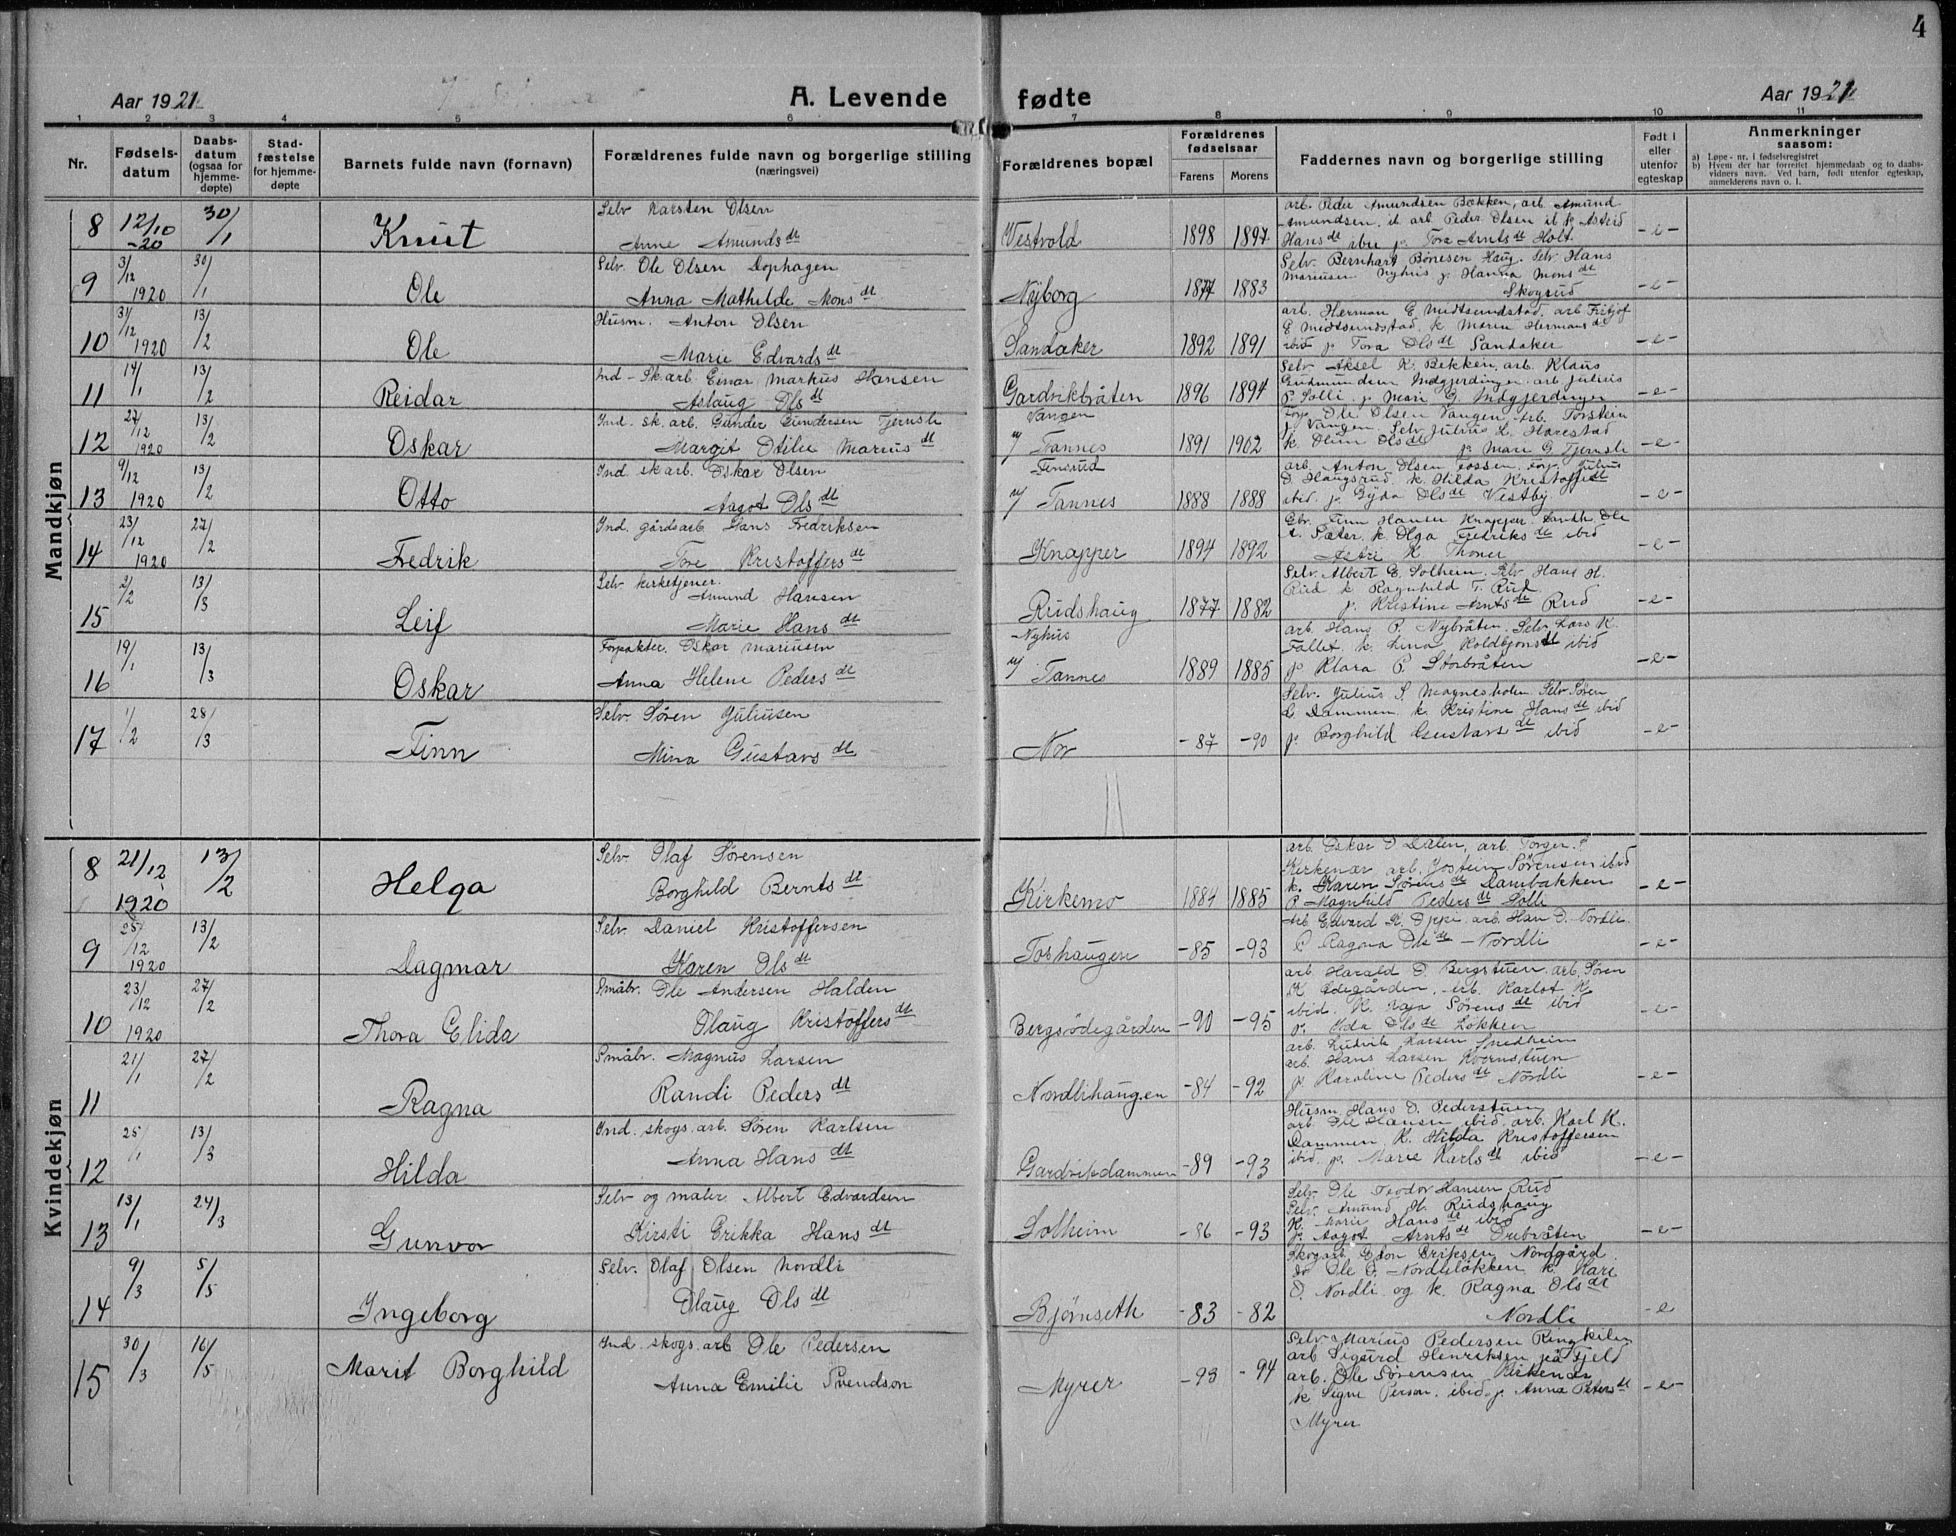 4
Aar 1921
A. Levende fødte
Aar 1921
1 2 3 4 5 6 7 8 9 10 11
Nr. Fødsels-datum Daabs-datum (ogsaa for hjemme-døpte) Stad-fæstelse for hjemme-døpte Barnets fulde navn (fornavn) Forældrenes fulde navn og borgerlige stilling (næringsvei) Forældrenes bopæl Forældrenes fødselsaar Farens Morens Faddernes navn og borgerlige stilling Født i eller utenfor egteskap Anmerkninger saasom:
a) Løpe-nr. i fødselsregistret
b) Hvem der har forrettet hjemmedaab og to daabs-vidners navn. Ved barn, født utenfor egteskap, anmelderens navn o. l.
Mandkjøn
8 12/10 -20 30/1 Knut Selv Karsten Olsen
Anne Amunds dt Vestvold 1898 1897 arb. Peder Amundsen Bækken, arb Amund
Amundsen, ib arb Peder Olsen ib k Astrid
Hans dt ibid p. Tora Arnts dt Holt. -e-
9 3/12 1920 30/1 Ole Selv. Ole Olsen Dophagen
Anna Mathilde Mons dt Nyborg 1877 1883 Selv. Bernhart Bönesen Haug. Selv. Hans
Mariusen Nyhus p. Hanna Mons dt
Skogrud -e-
10 31/12 1920 13/2 Ole Husm. Anton Olsen
Marie Edvards dt Sandaker 1892 1891 arb. Herman E Midtsundstad, arb Fritjof
E Midtsundstad, k Maren Hermans dt
ibid p. Tora Ols dt Sandaker -e-
11 14/1 13/2 Reidar Ind - Sk.arb. Einar Markus Hansen
Aslaug Ols dt Gardvikbråten 1896 1894 Selv Aksel K. Bekken, arb. Klaus
Gudmundsen Indgjerdingen arb Julius
P. Solli. p. Mari G. Indgjerdingen -e-
12 27/12 1920 13/2 Oskar Ind. sk. arb. Gunder Gundersen Tjernsli
Margit Otilie Marius dt Vangen
n/ Tannes 1891 1902 Forp. Ole Olsen Vangen. arb. Torstein
J. Vangen. Selv Julius L. Harestad
k Oline Ols dt p. Mari G Tjernsli -e-
13 9/12 1920 13/2 Otto Ind sk arb. Oskar Olsen
Aagot Ols dt Finsrud
n/ Tannes 1888 1888 arb. Anton Olsen Fossen. Forp. Julius
O. Haugsrud. k. Hilda Kristoffers dt
ibid. p. Gyda Ols dt Vestby -e-
14 23/12 1920 27/2 Fredrik Ind. gårdsarb. Hans Fredriksen
Tore Kristoffers dt Knapper 1894 1892 Gbr. Finn Hansen Knapper Landh. Ole
A. Sæter. k. Olga Fredriks dt ibid
Astri K Thoner -e-
15 2/2 13/3 Leif Selv kirketjener.
Amund Hansen
Marie Hans dt Rudshaug 1877 1882 Selv Albert E. Solheim. Selv Hans H.
Rud k Ragnhild T. Rud
p. Kristine Arnts dt Rud -e-
16 19/1 13/3 Oskar Forpakter. Oskar Mariusen
Anna Helene Peders dt Nyhus
n/ Tannes 1889 1885 arb. Hans P. Nybråten. Selv Lars K.
Fallet k. Lina Holdbjøns dt ibid
p. Klara P. Storbråten -e-
17 1/2 28/13 Finn Selv. Søren Juliusen
Mina Gustavs dt Nor -87 -90 Selv. Julius S Magnesholen Selv Søren
G Dammen k. Kristine Hans dt ibid
p. Borghild Gustavs dt ibid -e-
Kvindekjøn
8 21/12 1920 13/2 Helga Selv. Olaf Sørensen
Borghild Bernts dt Kirkemo 1884 1885 arb Oskar O Dalen, arb. Torger P
Kirkenær arb. Jostein Sørensen ibid
k. Karen Sørens dt Dambakken
P. Magnhild Peders dt Solli -e-
9 25/12 1920 13/2 Dagmar Selv. Daniel Kristoffersen
Karen Ols dt Toshaugen -85 -93 Arb Edvard K Oppi arb Han O. Nordli
P Ragna Ols dt Nordli -e-
10 23/12 1920 27/2 Thora Elida Småbr. Ole Andersen Halden
Olaug Kristoffers dt Bergsødegården -90 -95 arb Harald O. Bergstuen. arb. Søren
K Ødegården. arb. Karlot K
ibid K. Kaja Sørens dt ibid
p. Oda Ols dt Løkken -e-
11 21/1 27/2 Ragna Småbr. Magnus Larsen
Randi Peders dt Nordlihaugen -84 -92 arb. Ludvik Larsen Snedheim
arb. Hans Larsen Kvernstuen
p. Karoline Peders dt Nordli -e-
12 25/1 13/3 Hilda Ind. skogs. arb. Søren Karlsen
Anna Hans dt Gardvikdammen -89 -93 Husm. Hans O. Pederstuen
arb. Ole Hansen ibid. arb. Karl K.
Dammen, K. Hilda Kristoffersen
ibid. p. Marie Karls dt ibid -e-
13 13/1 24/3 Gunvor Selv og maler Albert Edvardsen
Kirsti Erikka Hans dt Solheim -86 -93 Selv. Ole Teodor Hansen Rud
Selv Amund H. Rudshaug
K. Marie Hans dt ibid
p. Aagot Arnts dt Ørebråten -e-
14 9/3 5/5 Ingeborg Selv. Olaf Olsen Nordli
Olaug Ols dt Bjørnseth -83 -82 Skogarb. Edon Eriksen Nordgård.
Do Ole O. Nordliløkken k. Kari
O. Nordli og k. Ragna Ols dt
Nordli -e
15 30/3 16/5 Marit Borghild Ind. skogs. arb Ole Pedersen
Anna Emilie Svendson Myrer -93 -94 Selv. Marius Pedersen Ringkilen
arb Sigurd Henriksen på Fjeld
arb. Ole Sørensen Kirkenær
k Signe Person. ibid p. Anna Peters dt
Myrer -e-